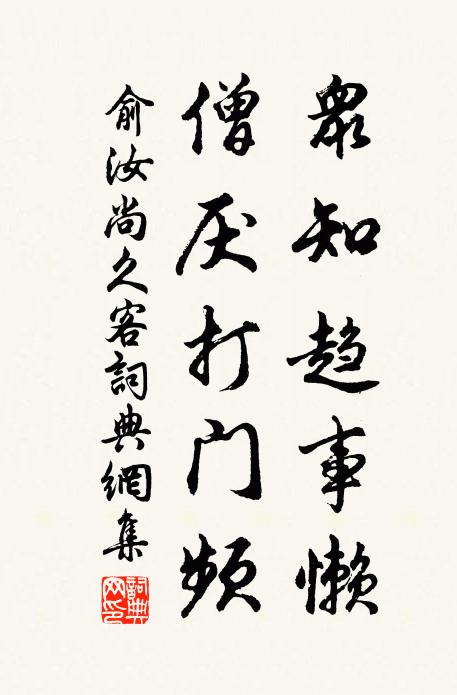 衆知趋事懒
僧厌打门频
俞汝尚久客詞典網集
詞典网印